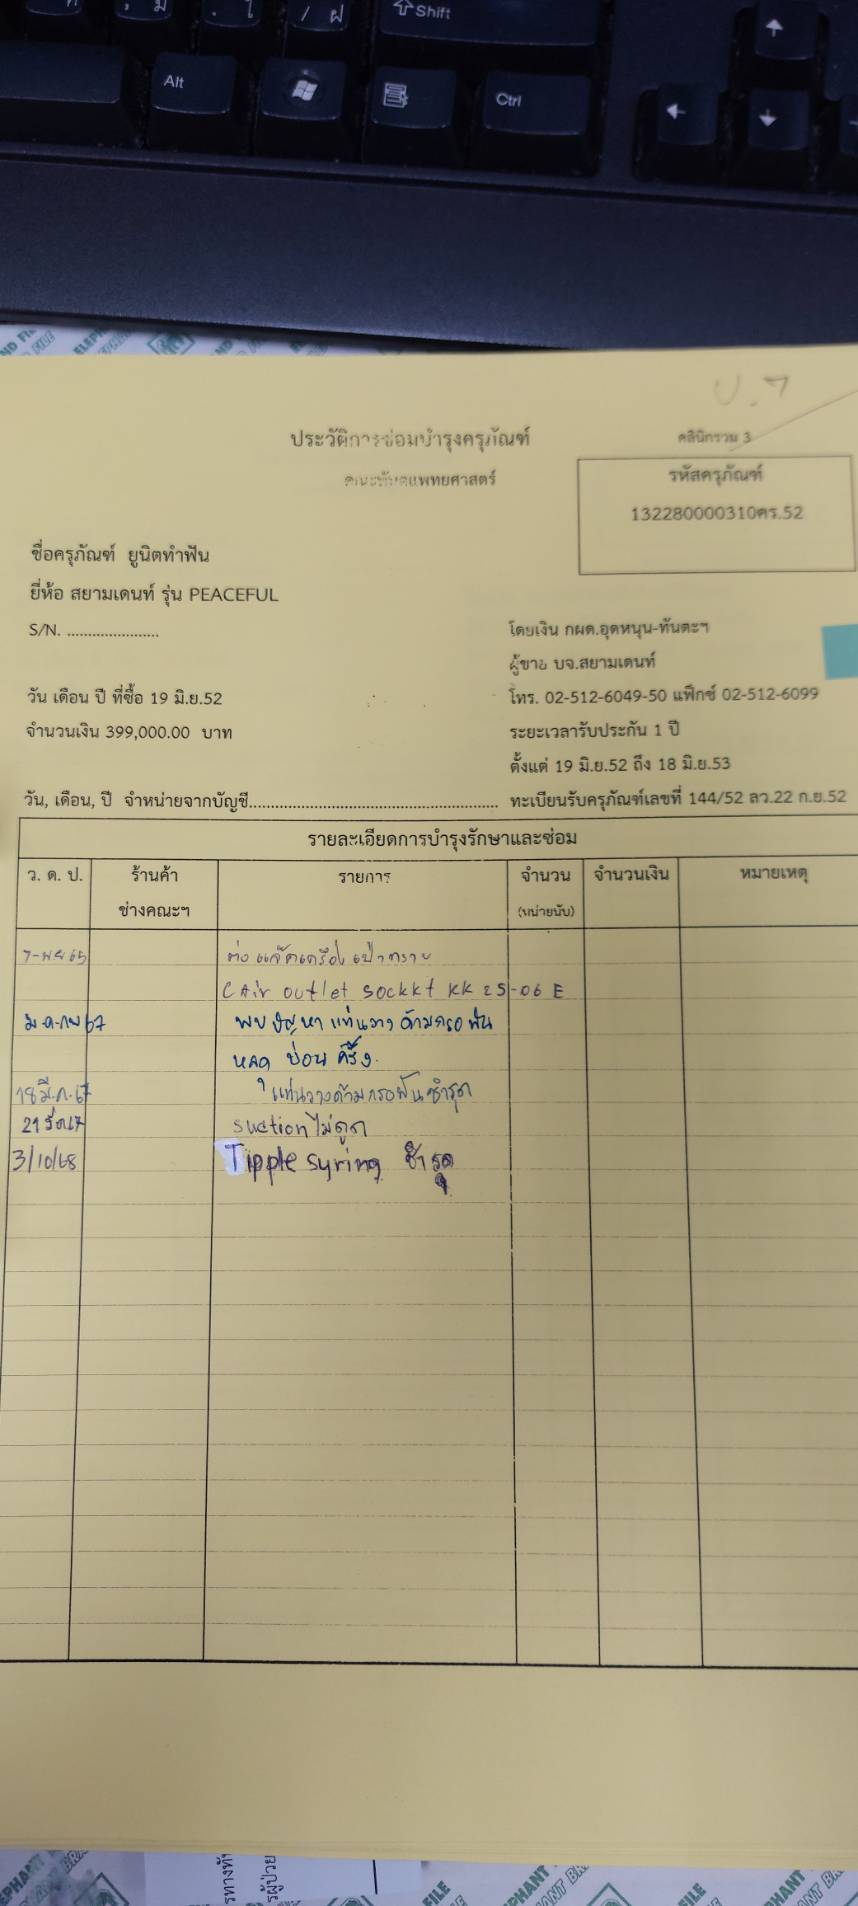 Shift
Alt
Ctrl
ย.7
ประวัติการซ่อมบำรุงครุภัณฑ์
คลินิกรวม 3
คณะทันตแพทยศาสตร์
รหัสครุภัณฑ์
132280000310คร.52
ชื่อครุภัณฑ์ ยูนิตทำฟัน
ยี่ห้อ สยามเดนท์ รุ่น PEACEFUL
S/N. ......................
โดยเงิน กผด.อุดหนุน-ทันตะฯ
ผู้ขาย บจ.สยามเดนท์
วัน เดือน ปี ที่ซื้อ 19 มิ.ย.52
โทร. 02-512-6049-50 แฟ็กซ์ 02-512-6099
จำนวนเงิน 399,000.00 บาท
ระยะเวลารับประกัน 1 ปี
ตั้งแต่ 19 มิ.ย.52 ถึง 18 มิ.ย.53
วัน, เดือน, ปี จำหน่ายจากบัญชี.......................................................... ทะเบียนรับครุภัณฑ์เลขที่ 144/52 ลว.22 ก.ย.52
รายละเอียดการบำรุงรักษาและซ่อม
ว. ด. ป. ร้านค้า รายการ จำนวน จำนวนเงิน หมายเหตุ
ช่างคณะฯ (หน่วยนับ)
ต่อ เครื่องเป่าทราย
CAir outlet sockkt KK 25-06 E
ม.ค-กพ 67 พบปัญหา แท่นวาง ด้ามกรอฟัน
หลุด บ่อน ครั้ง.
18 มี.ค.67 แท่นวางด้ามกรอฟันชำรุด
suction ไม่ดูด
3/10/68 Tipple syring ชำรุด
ELEPHANT
FILE
ELEPHANT BRAND